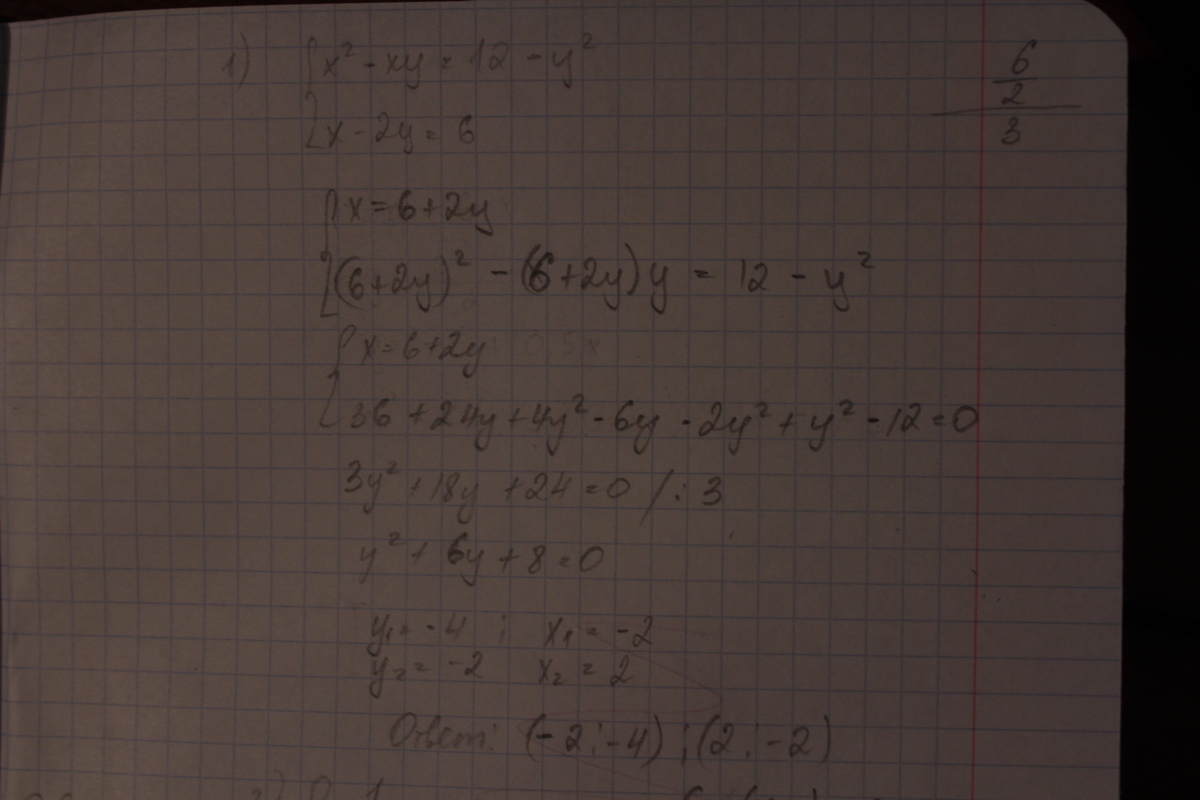 1) { x² - xy = 12 - y²
x - 2y = 6
6
2
3
{ x = 6 + 2y
(6+2y)² - (6+2y)y = 12 - y²
{ x = 6 + 2y
36 + 24y + 4y² - 6y - 2y² + y² - 12 = 0
3y² + 18y + 24 = 0 / : 3
y² + 6y + 8 = 0
y₁ = -4 ; x₁ = -2
y₂ = -2 x₂ = 2
Ответ: (-2 ; -4) ; (2 ; -2)